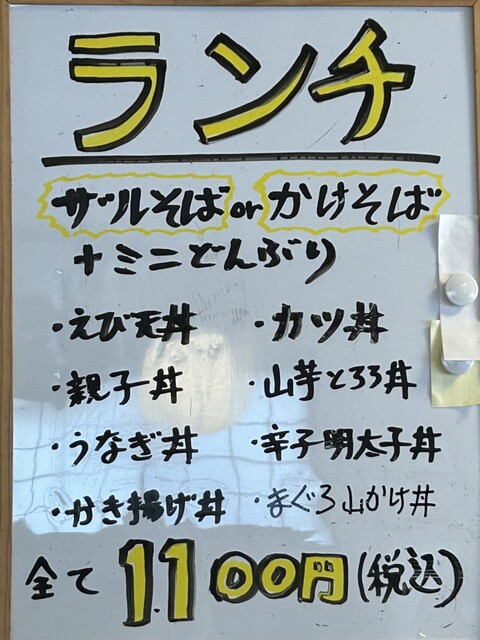 ランチ
ザルそば or かけそば
+ミニどんぶり
・えび天丼 ・カツ丼
・親子丼 ・山芋とろろ丼
・うなぎ丼 ・辛子明太子丼
・かき揚げ丼 ・まぐろ山かけ丼
全て 1.100円(税込)